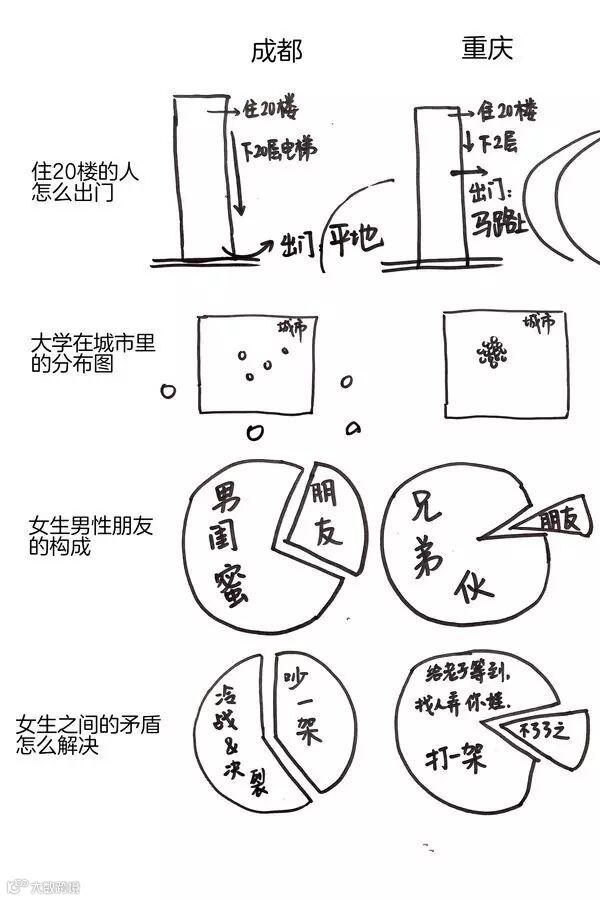 成都
重庆
住20楼的人
怎么出门
住20楼
下20层电梯
出门：平地
住20楼
下2层
出门：
马路上
大学在城市里
的分布图
城市
城市
女生男性朋友
的构成
男闺蜜
朋友
兄弟伙
朋友
女生之间的矛盾
怎么解决
冷战&决裂
吵一架
给老子等到，
找人弄你娃.
打一架
不了了之
大欧跨境